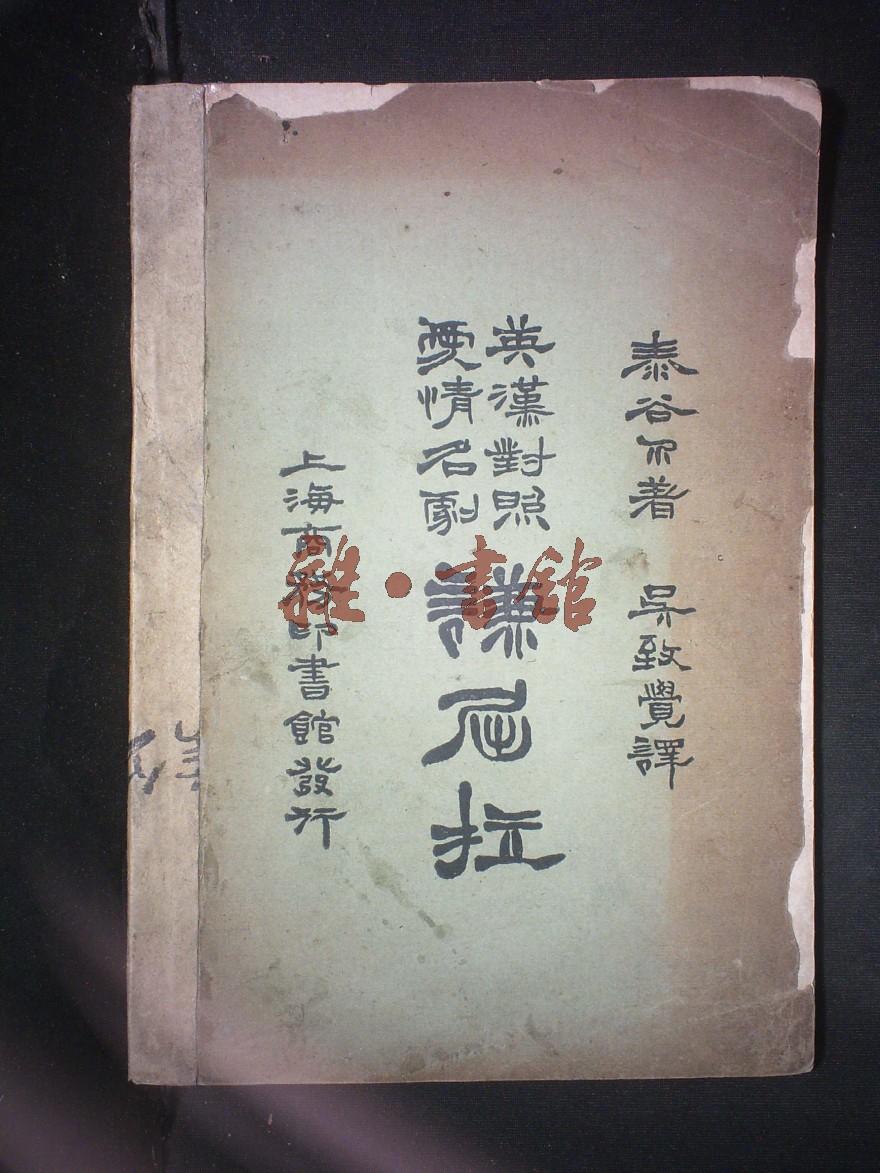 泰谷尔著 吳致覺譯
英漢對照
愛情名劇
謙屈拉
上海商務印書館發行
雜·書館